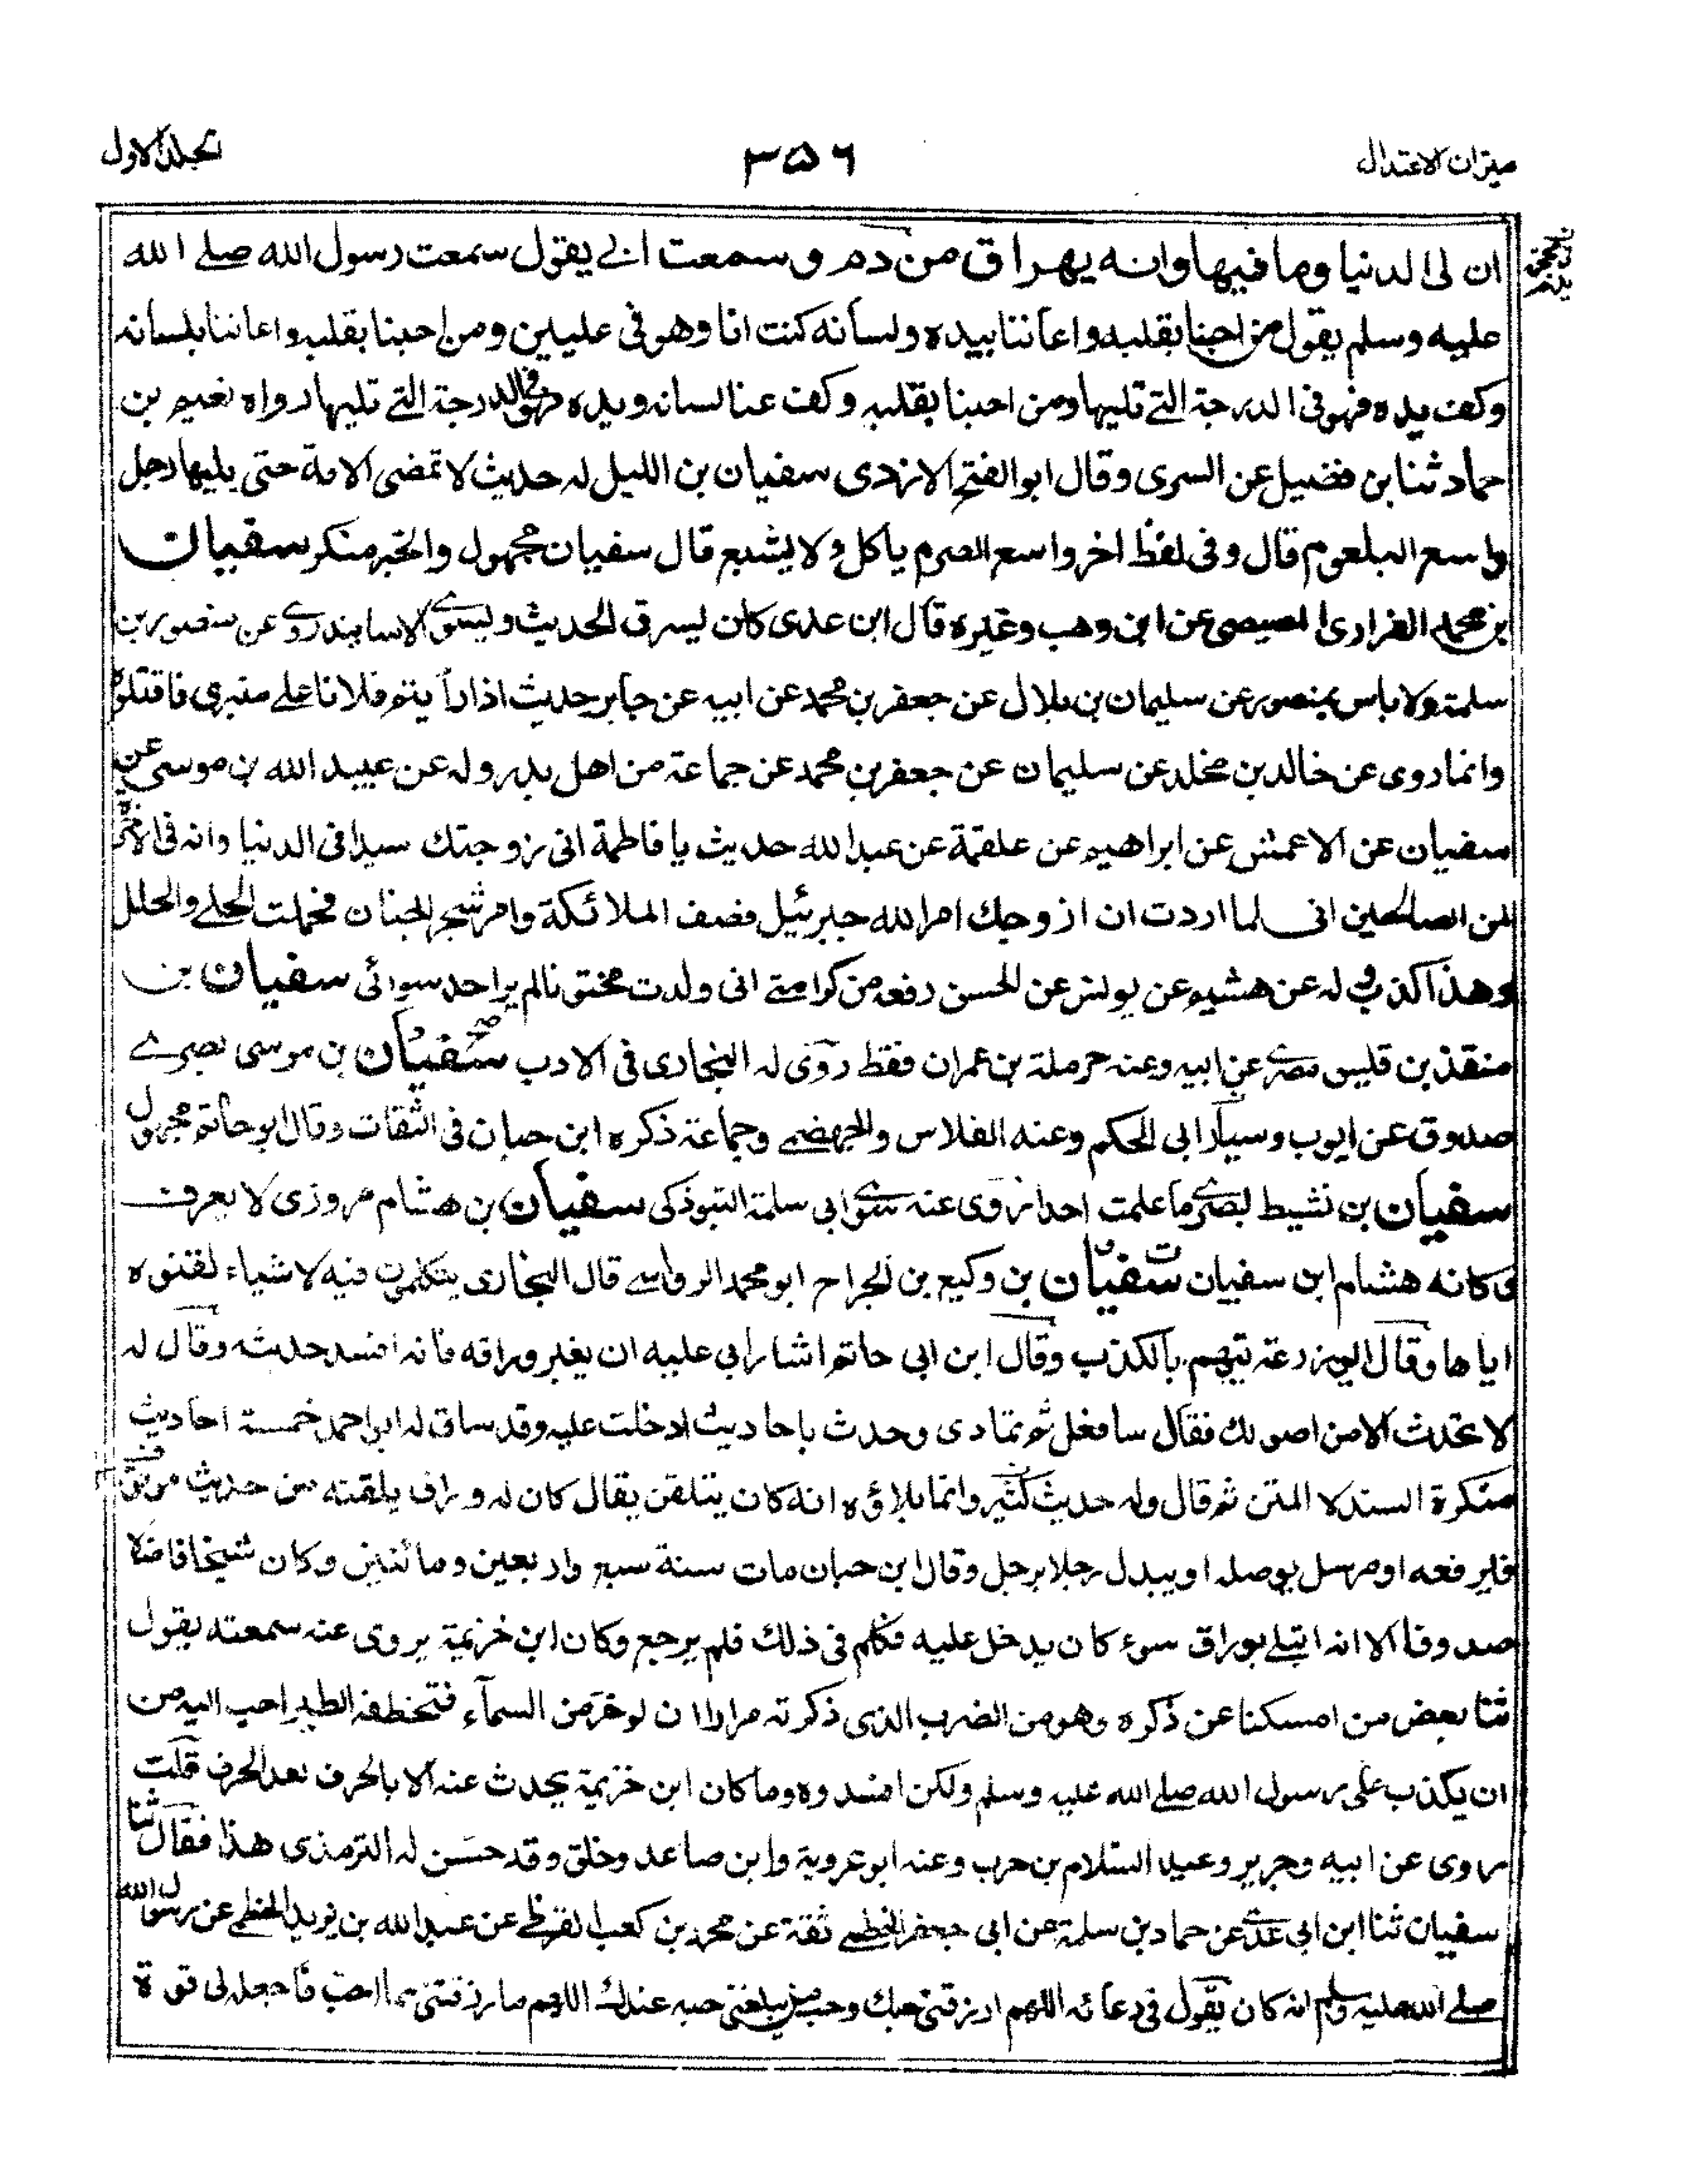 ميزان الاعتدال
٣٥٦
المجلد الاول
ان لى الدنيا وما فيها وانه يهراق من دم وسمعت ابى يقول سمعت رسول الله صلے الله
عليه وسلم يقول من احبنا بقلبه واعاننا بيده ولسانه كنت انا وهو فى عليين ومن احبنا بقلبه واعاننا بلسانه
وكف يده فهو فى الدرجة التے تليها ومن احبنا بقلبه وكف عنا لسانه ويده فهو فى الدرجة التے تليها رواه نعيم بن
حماد ثنا ابن فضيل عن السرى وقال ابو الفتح الازدى سفيان بن الليل له حديث لا تمضى الامة حتى يليها رجل
واسع البلعوم قال وفى لفظ اخر واسع الصرم ياكل ولا يشبع قال سفيان مجهول والخبر منكر سفيان
بن محمد الفزارى المصيصى عن ابن وهب وغيره قال ابن عدى كان يسرق الحديث ويسوے الاسانيد روے عن منصور بن
سلمة ولا باس بمنصور عن سليمان بن بلال عن جعفر بن محمد عن ابيه عن جابر حديث اذا رأيتم فلانا علے منبرى فاقتلوه
وانما روى عن خالد بن مخلد عن سليمان عن جعفر بن محمد عن جماعة من اهل بدر وله عن عبيد الله بن موسى عن
سفيان عن الاعمش عن ابراهيم عن علقمة عن عبد الله حديث يا فاطمة انى زوجتك سيدا فى الدنيا وانه فى الاخرة
لمن الصالحين انى لما اردت ان ازوجك امر الله جبرئيل فصف الملائكة وامر شجر الجنان فحملت الحلے والحلل
وهذا كذب وله عن هشيم عن يونس عن الحسن رفعه من كرامتے انى ولدت مختونا لم ير احد سوائى سفيان بن
منقذ بن قيس مصرے عن ابيه وعنه حرملة بن عمران فقط روى له البخارى فى الادب سفيان بن موسى بصرے
صدوق عن ايوب وسيار ابى الحكم وعنه الفلاس والجهضمے وجماعة ذكره ابن حبان فى الثقات وقال ابو حاتم مجهول
سفيان بن نشيط بصرے ما علمت احدا روى عنه سوے ابى سلمة التبوذكى سفيان بن هشام مروزى لا يعرف
وكانه هشام ابن سفيان سفيان بن وكيع بن الجراح ابو محمد الرواسے قال البخارى يتكلمون فيه لاشياء لقنوه
اياها وقال ابو زرعة يتهم بالكذب وقال ابن ابى حاتم اشار ابى عليه ان يغير وراقه فانه افسد حديثه وقال له
لا تحدث الا من اصولك فقال سافعل ثم تمادى وحدث باحاديث ادخلت عليه وقد ساق له ابو احمد خمسة احاديث
منكرة السند لا المتن ثم قال وله حديث كثير وانما بلاؤه انه كان يتلقن يقال كان له وراق يلقنه من حديث موقوف
فيرفعه او مرسل يوصله او يبدل رجلا برجل وقال ابن حبان مات سنة سبع واربعين ومائتين وكان شيخا فاضلا
صدوقا الا انه ابتلے بوراق سوء كان يدخل عليه فكلم فى ذلك فلم يرجع وكان ابن خزيمة يروى عنه سمعته يقول
ثنا بعض من امسكنا عن ذكره وهو من الضرب الذى ذكرته مرارا ان لو خر من السمآء فتخطفه الطير احب اليه من
ان يكذب على رسول الله صلے الله عليه وسلم ولكن افسدوه وما كان ابن خزيمة يحدث عنه الا بالحرف بعد الحرف قلت
روى عن ابيه وجرير وعبد السلام بن حرب وعنه ابو عروبة وابن صاعد وخلق وقد حسن له الترمذى هذا فقال ثنا
سفيان ثنا ابن ابى عدے عن حماد بن سلمة عن ابى جعفر الخطمے ثقة عن محمد بن كعب القرظے عن عبد الله بن يزيد الخطمے عن رسول الله
صلے الله عليه وسلم انه كان يقول فى دعائه اللهم ارزقنى حبك وحب من يبلغنى حبه عندك اللهم ما رزقتنى مما احب فاجعله لى قوة